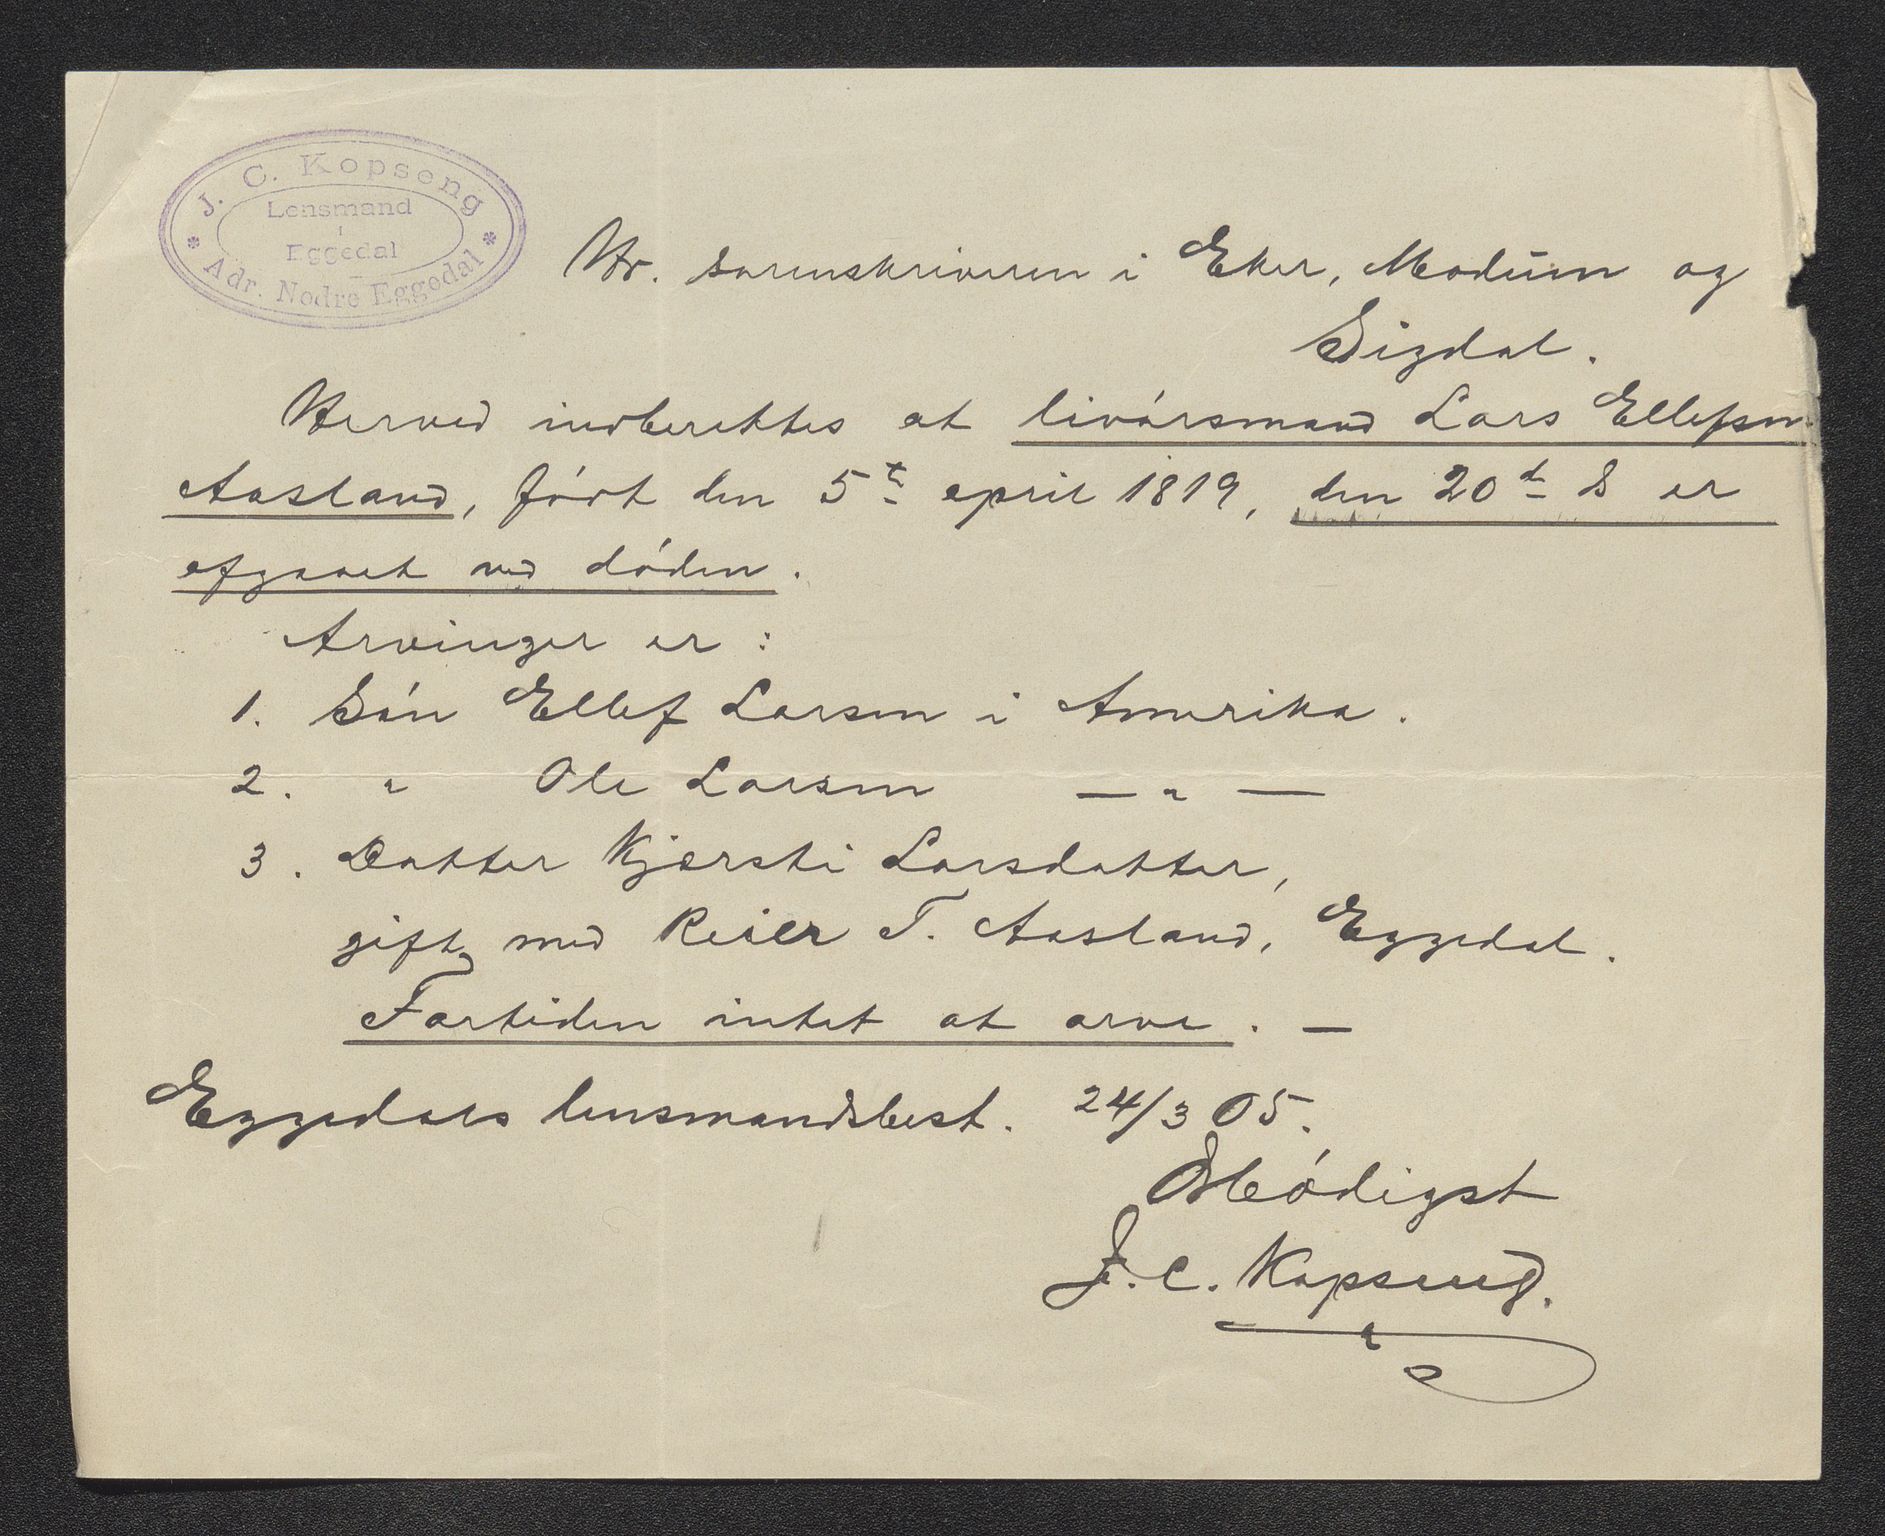 J. C. Kopseng
Lensmand
i
Eggedal
Adr. Nedre Eggedal
Hr. sorenskriveren i Eker, Modum og
Sigdal.
Herved indberettes at livörsmand Lars Ellefsen
Aasland, född den 5te april 1819, den 20de ds er
afgaaet ved döden.
Arvinger er:
1. Sön Ellef Larsen i Amerika.
2. " Ole Larsen — " —
3. Datter Kjersti Larsdatter,
gift med Reier T. Aasland, Eggedal.
Fortiden intet at arve. —
Eggedals lensmandsbest. 24/3 05.
Ærbödigst
J. C. Kopseng.